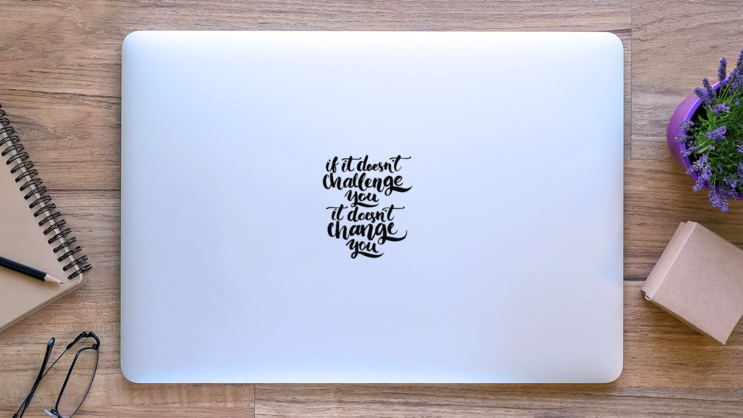 if it doesn't
challenge
you
it doesn't
change
you